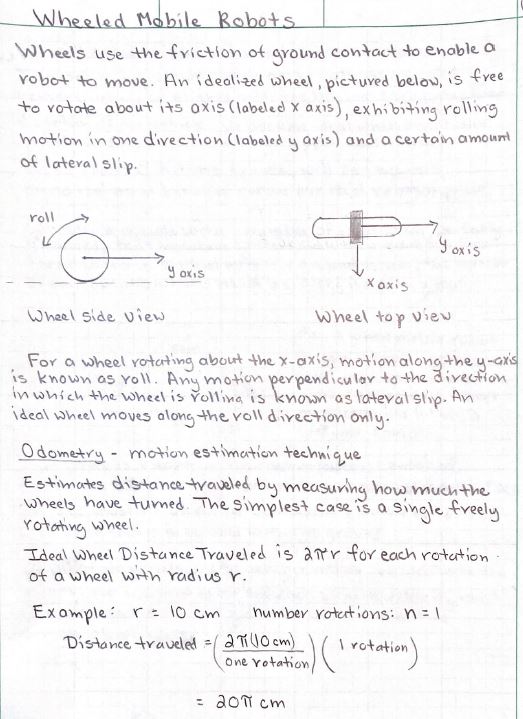 Wheeled Mobile Robots
Wheels use the friction of ground contact to enable a
robot to move. An idealized wheel, pictured below, is free
to rotate about its axis (labeled x axis), exhibiting rolling
motion in one direction (labeled y axis) and a certain amount
of lateral slip.
roll
y axis
y axis
x axis
Wheel side view
Wheel top view
For a wheel rotating about the x-axis, motion along the y-axis
is known as roll. Any motion perpendicular to the direction
in which the wheel is rolling is known as lateral slip. An
ideal wheel moves along the roll direction only.
Odometry - motion estimation technique
Estimates distance traveled by measuring how much the
wheels have turned. The simplest case is a single freely
rotating wheel.
Ideal Wheel Distance Traveled is 2πr for each rotation
of a wheel with radius r.
Example: r = 10 cm number rotations: n = 1
Distance traveled = (2π(10 cm) / one rotation) (1 rotation)
= 20π cm